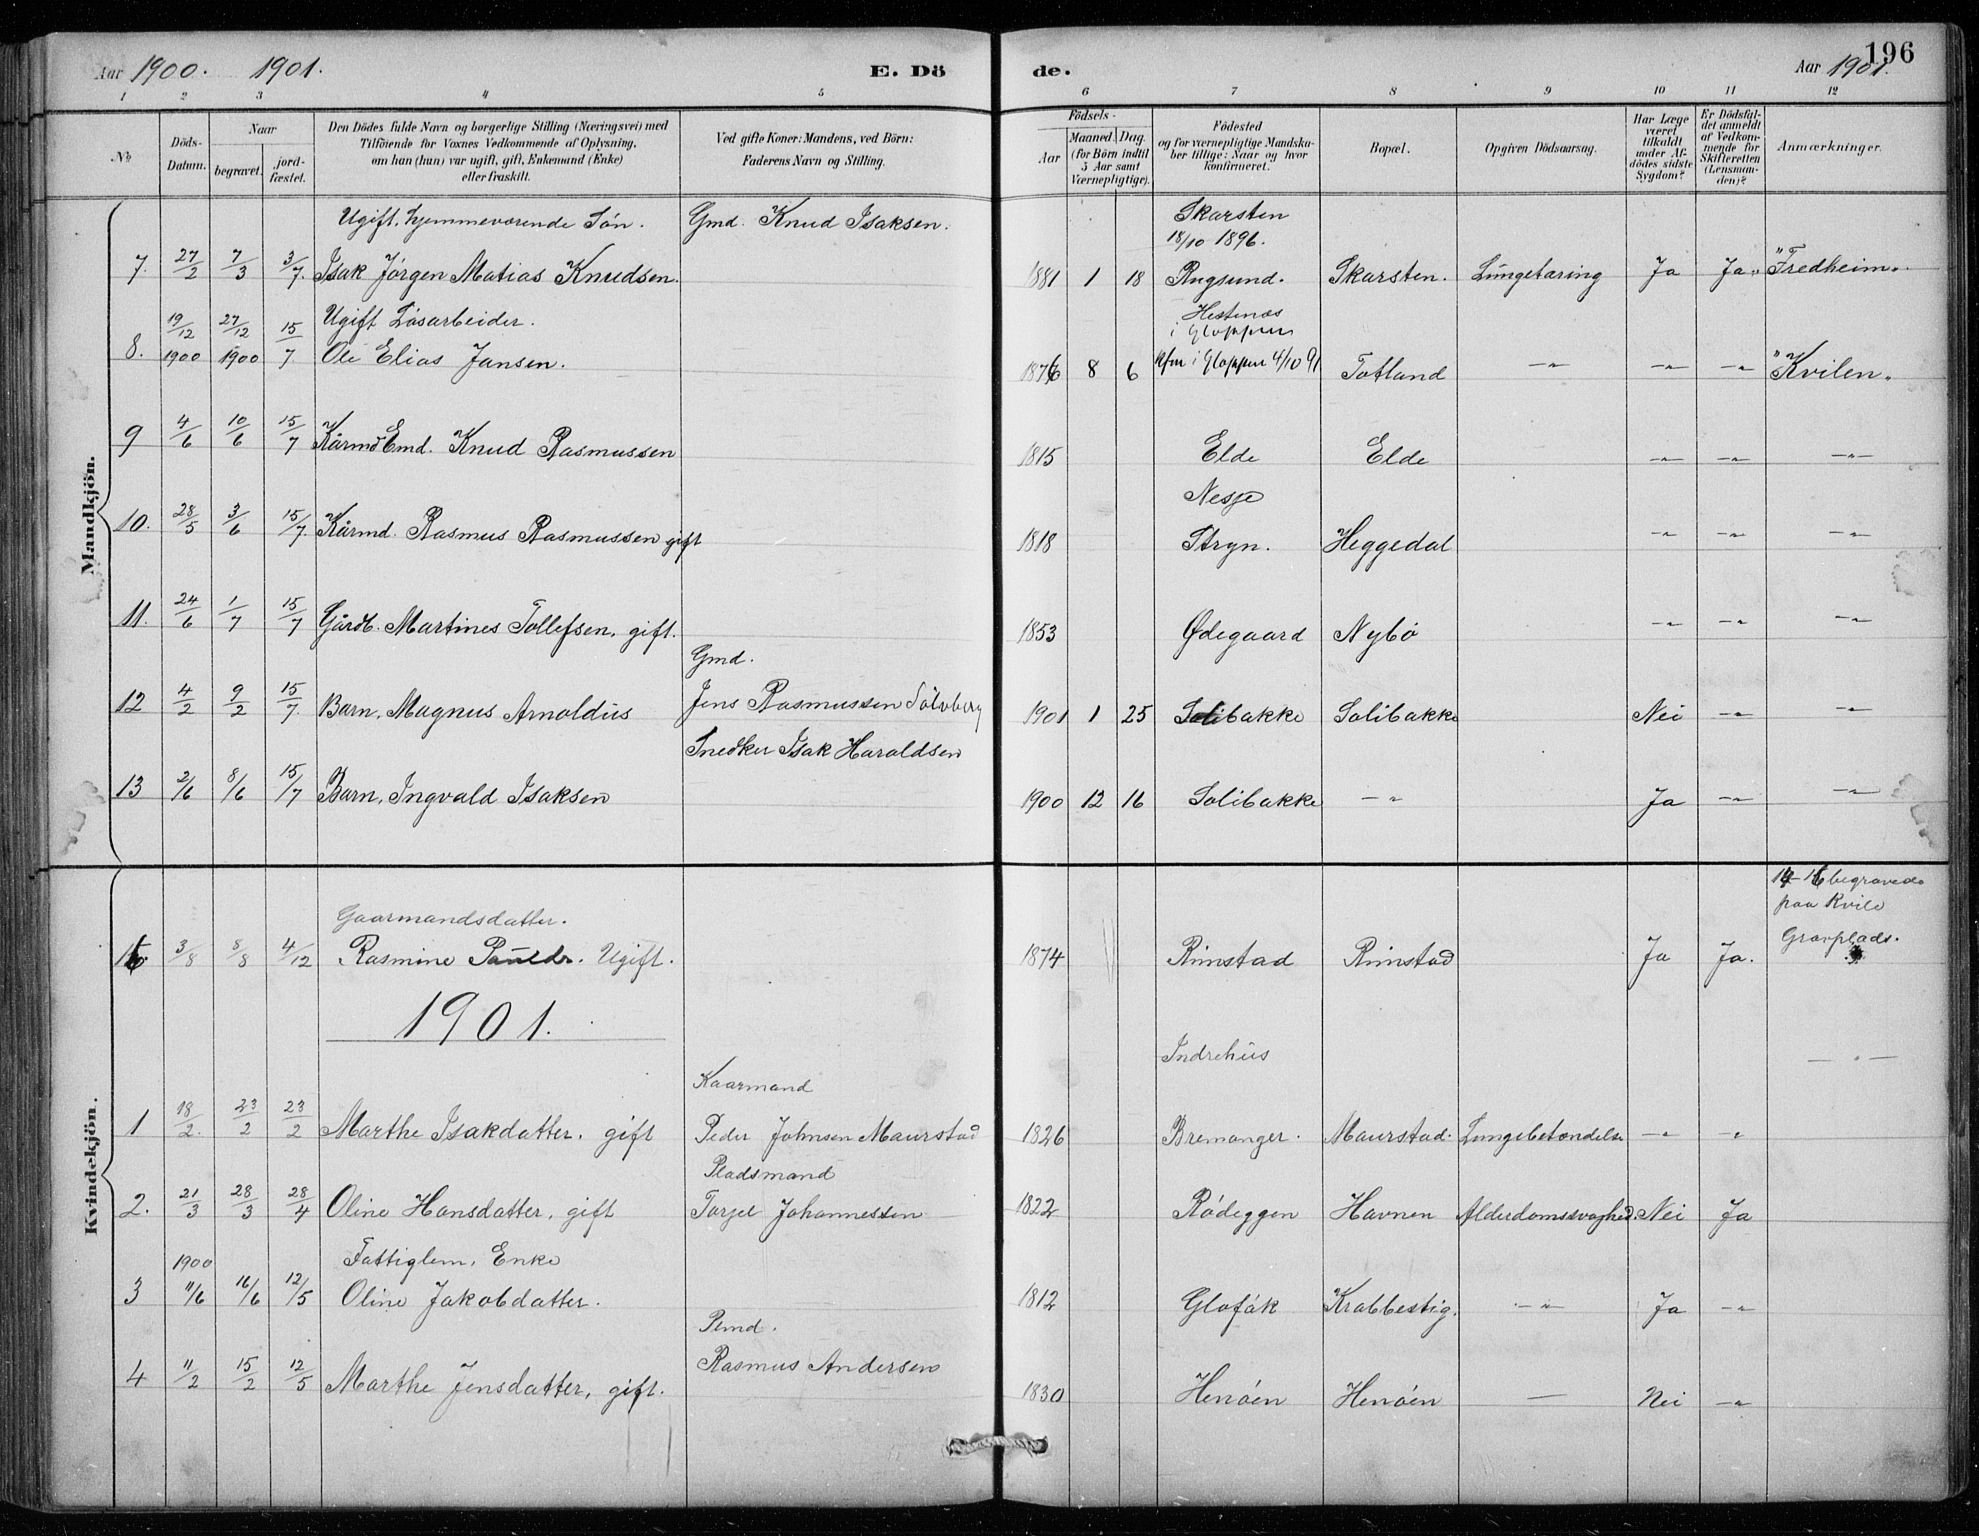 Aar 1900. 1901. E. Dö
de. Aar 1901. 196
1 2 3 4 5 6 7 8 9 10 11 12
No Döds-Datum. Naar begravet. jord-fæstet. Den Dödes fulde Navn og borgerlige Stilling (Næringsvei) med Tilföiende for Voxnes Vedkommende af Oplysning, om han (hun) var ugift, gift, Enkemand (Enke) eller fraskilt. Ved gifte Koner: Mandens, ved Börn: Faderens Navn og Stilling. Födsels- Aar Maaned. Dag. (for Börn indtil 5 Aar samt Værnepligtige). Födested og for værnepligtige Mandskaber tillige: Naar og hvor konfirmeret. Bopæl. Opgiven Dödsaarsag. Har Læge været tilkaldt under Afdödes sidste Sygdom? Er Dödsfaldet anmeldt af Vedkommende for Skifteretten (Lensmanden)? Anmærkninger.
Mandkjön.
Ugift, hjemmeværende Sön. Gmd. Knud Isaksen. Skarsten
18/10 1896.
7. 27/2 7/3 3/7. Isak Jörgen Matias Knudsen. 1881 1 18 Rugsund. Skarsten. Lungetæring Ja Ja " "Fredheim".
19/12 27/12 15/7 Ugift Lösarbeider. Hestenæs
i Gloppen
8. 1900 1900 Ole Elias Jansen. 1876 8 6 kfm i Gloppen 4/10 91 Totland —"— —"— —"— "Kvilen"
9 4/6 10/6 15/7 Kårmd Emd. Knud Rasmussen 1815 Elde Elde —"— —"— —"—
Nesje
10. 28/5 3/6 15/7. Kårmd. Rasmus Rasmussen gift 1818 Stryn. Heggedal —"— —"— —"—
11. 24/6 1/7 15/7 Gårdb. Martines Tollefsen, gift. 1853 Ødegaard Nybö —"— —"— —"—
Gmd.
12 4/2 9/2 15/7. Barn, Magnus Arnoldus Jens Rasmussen Sölvberg 1901 1 25 Solibakke Solibakke Nei —"— —"—
Snedker Isak Haraldsen
13 2/6 8/6 15/7 Barn, Ingvald Isaksen 1900 12 16 Solibakke —"— Ja —"— —"—
Kvindekjön.
14-16 begravede
paa Kvile
Gaarmandsdatter. Gravplads.
16. 3/8 8/8 4/12 Rasmine Paulsdr. Ugift. 1874 Rimstad Rimstad Ja Ja.
1901.
Kaarmand Indrehus —"—
1 18/2. 23/2 23/2 Marthe Isakdatter. gift Peder Johnsen Maurstad 1826 Bremanger. Maurstad. Lungebetændelse —"— —"—
Pladsmand
2. 21/3 28/3 28/4 Oline Hansdatter, gift Torjel Johannessen 1822 Rödeggen Havnen Alderdomssvaghed. Nei Ja
1900 Fattiglem, Enke
3 11/6 16/6 12/5 Oline Jakobdatter. 1812 Glofåk Krabbestig. —"— Ja —"—
Pemd.
4 11/2 15/2 12/5 Marthe Jensdatter, gift. Rasmus Andersens 1830 Henöen Henöen — Nei —"—